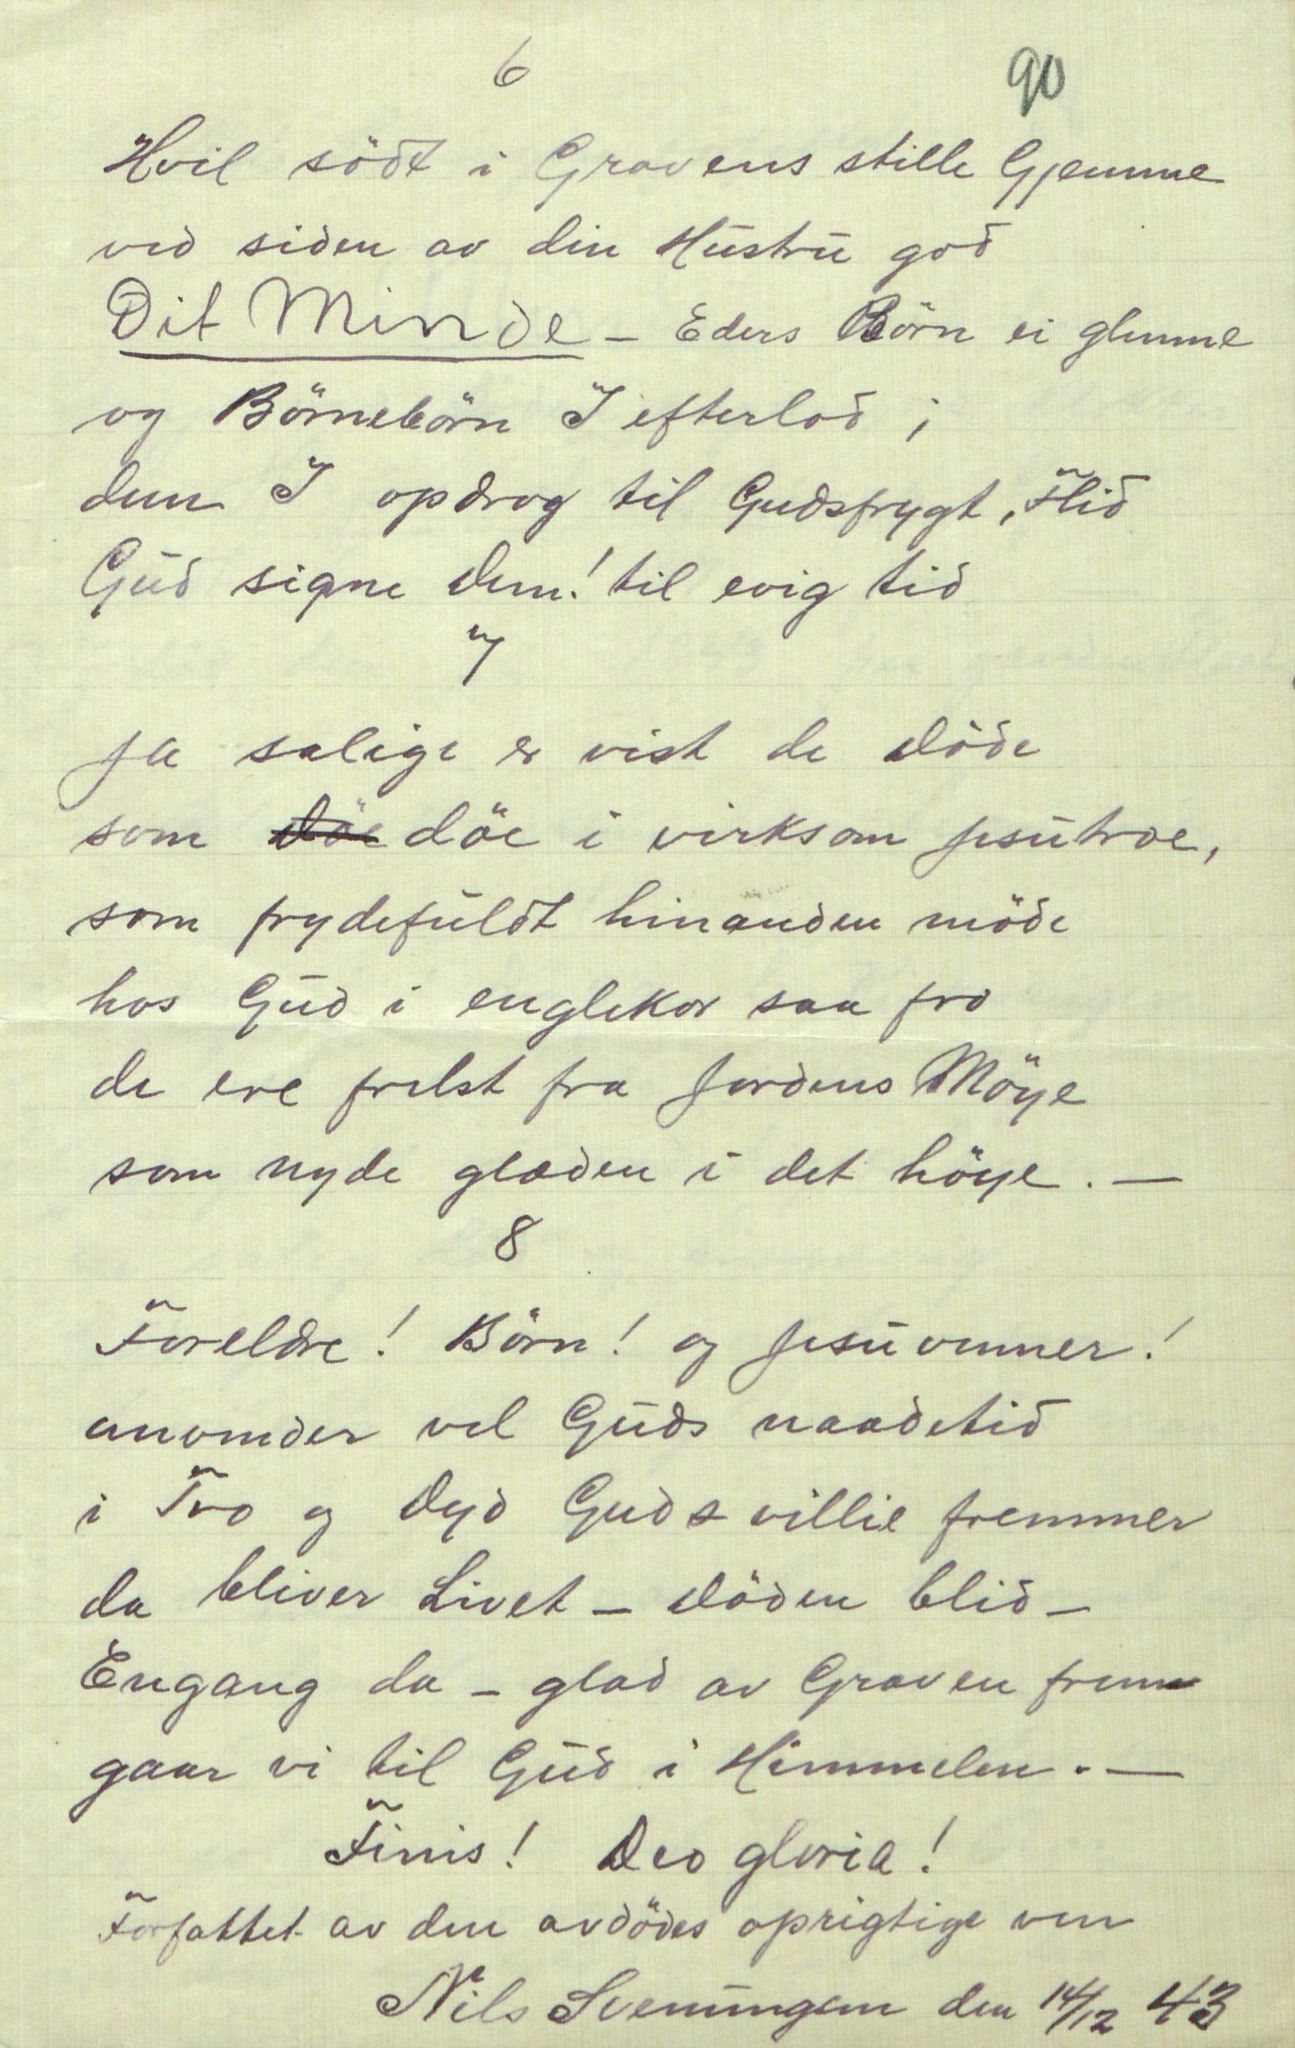 6
90
Hvil södt i Gravens stille Gjemme
ved siden av din Hustru god
Dit Minde - Eders Börn ei glemme
og Börnebörn I efterlod ;
dem I opdrog til Gudsfrygt, Flid
Gud signe dem! til evig tid
7
Ja salige er vist de döde
som döe döe i virksom Jesutroe,
som frydefuldt hinanden möde
hos Gud i englekor saa fro
de ere frelst fra Jordens Möye
som nyde glæden i det höye. —
8
Foreldre! Börn! og Jesu venner!
anvender vel Guds naadetid
i Tro og Dyd Guds villie fremmer
da bliver Livet - döden blid -
Engang da - glad av Graven frem
gaar vi til Gud i Himmelen. —
Finis! Deo gloria!
Forfattet av den avdödes oprigtige ven
Nils Sveningsen den 14/12 43